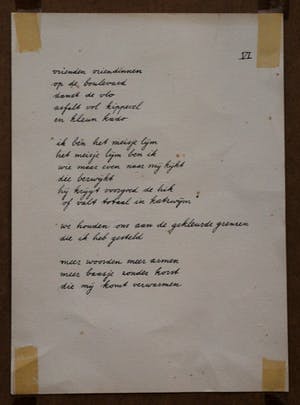 VI
vrienden vriendinnen
op de boulevard
danst de vlo
asfalt vol kippevel
en kado
"ik ben het meisje lijm
het meisje lijm ben ik
wie maar even naar mij kijkt
die bezwijkt
hij krijgt voorgoed de hik
of valt totaal in katzwijm"
we houden ons aan de gekleurde grenzen
die ik heb gesteld
meer woorden meer armen
meer baasje zonder
die mij komt verwarmen